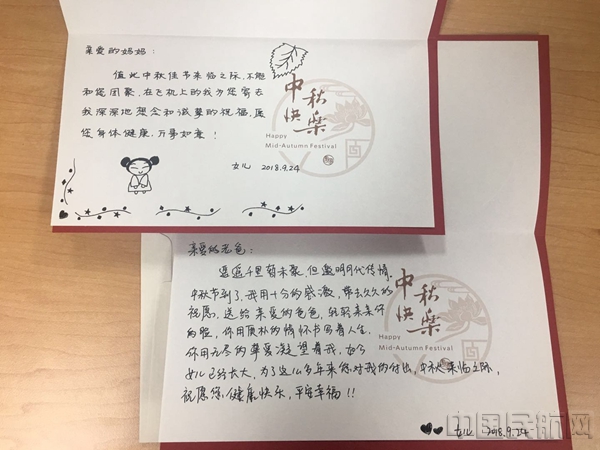 亲爱的妈妈：
值此中秋佳节来临之际，不能
和您团聚，在飞机上的我为您寄去
我深深地想念和诚挚的祝福，愿
您身体健康，万事如意！
女儿 2018.9.24
中秋
快乐
Happy
Mid-Autumn Festival
亲爱的老爸：
遥遥千里暂未聚，但邀明月代传情，
中秋节到了，我用十分的感激，带去久久的
祝愿，送给亲爱的老爸，轻轻亲亲你
的脸，你用质朴的情怀书写着人生，
你用无尽的挚爱凝望着我，如今
女儿已经长大，为了这么多年来您对我的付出，中秋来临之际，
祝愿您，健康快乐，平安幸福！！
女儿 2018.9.24
中秋
快乐
Happy
Mid-Autumn Festival
中国民航网